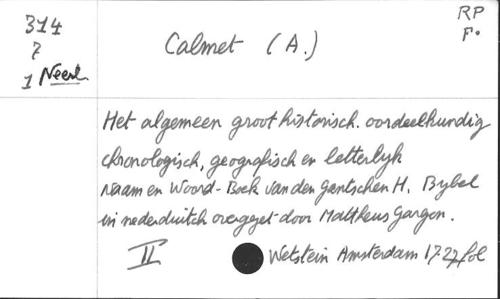 314
7
1 Neerl.
Calmet (A.)
RP
F.
Het algemeen groot historisch. oordeelkundig
chronologisch, geografisch en letterlyk
Naam en Woord-Boek van den gantschen H. Bybel
in nederduitch overgezet door Mattheus Gargon.
II Wetstein Amsterdam 1727 fol